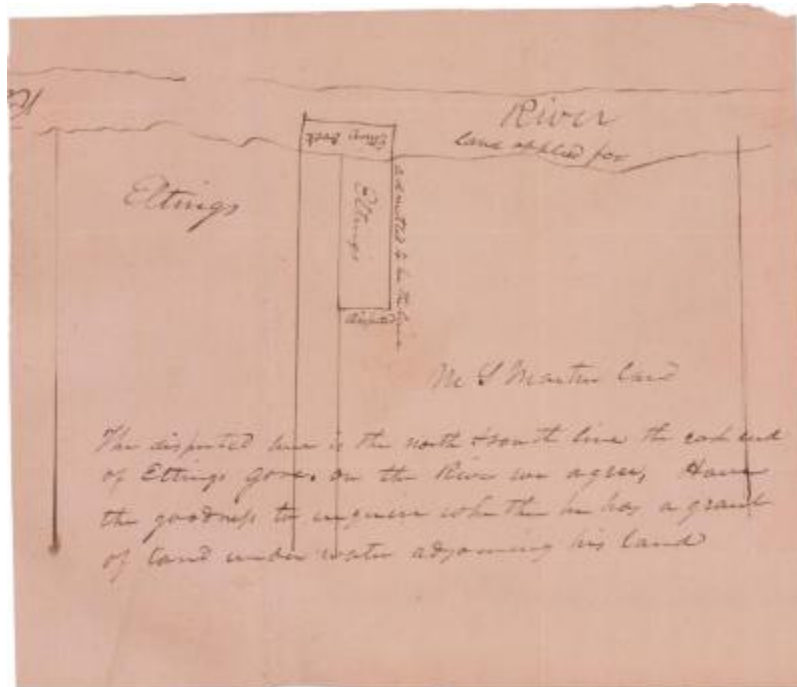 River
land applied for
Eltings Dock
Eltings
Eltings
admitted to be the line
disputed
M S Martin land
The disputed line is the north & south line the east end
of Eltings gore. on the River we agree, Have
the goodness to inquire whether he has a grant
of land under water adjoining his land